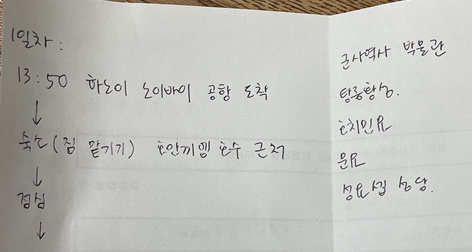 1일차 :
13:50 하노이 노이바이 공항 도착
↓
숙소 (짐 맡기기) 호안끼엠 호수 근처
↓
점심
↓
군사역사 박물관
탕롱황성.
호치민묘
문묘
성요셉 성당.